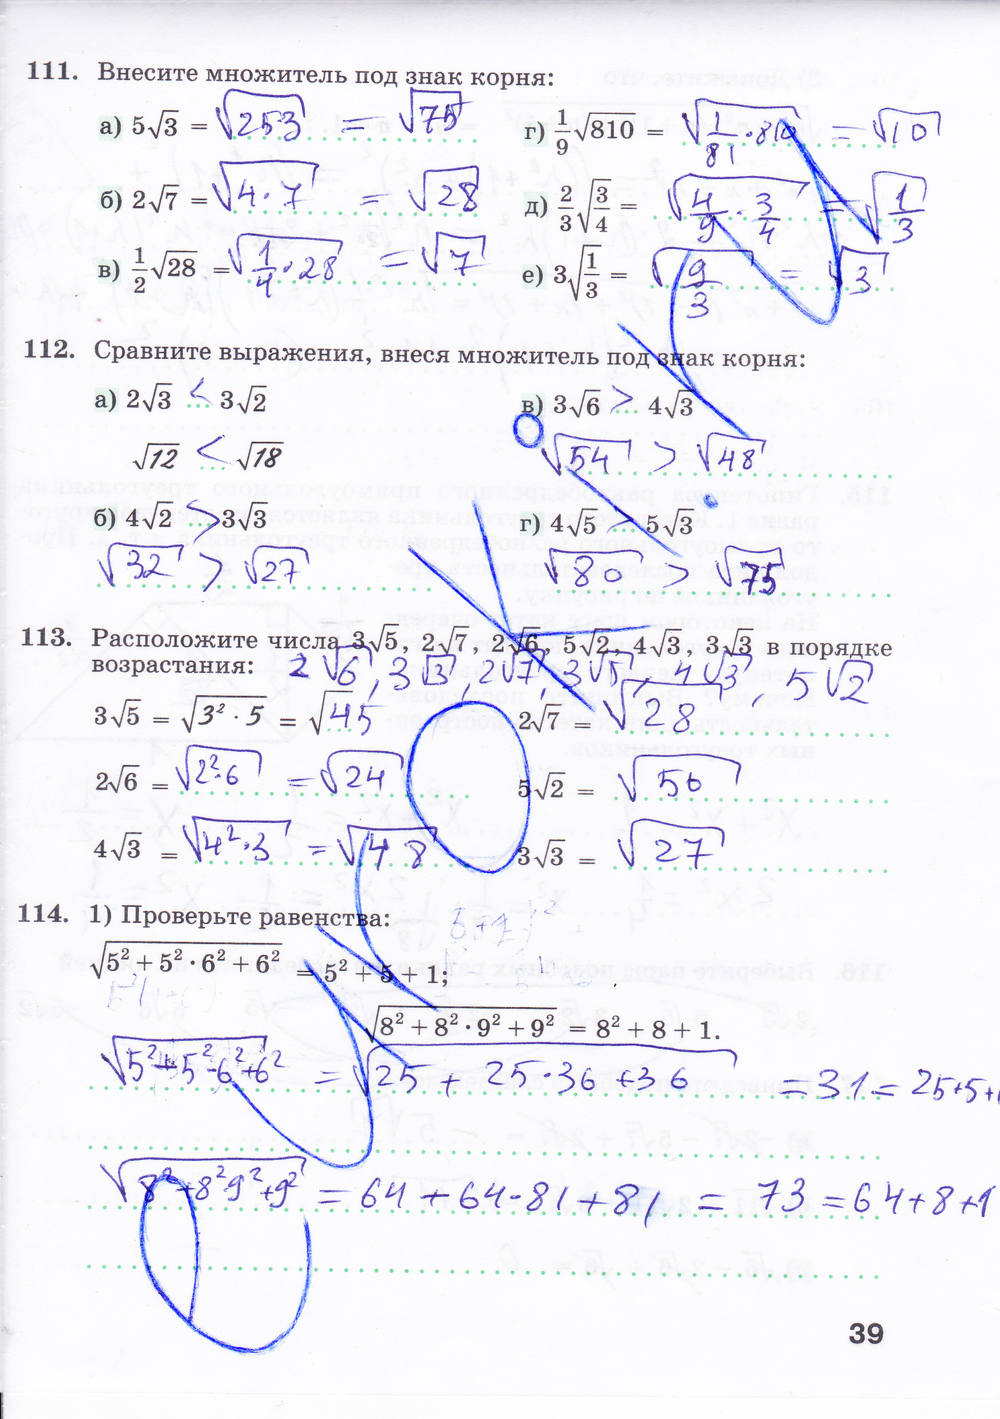 111. Внесите множитель под знак корня:
а) 5√3 = √253 = √75
г) 1/9 √810 = √(1/81 · 810) = √10
б) 2√7 = √(4 · 7) = √28
д) 2/3 √(3/4) = √(4/9 · 3/4) = √(1/3)
в) 1/2 √28 = √(1/4 · 28) = √7
е) 3√(1/3) = √(9/3) = √3
112. Сравните выражения, внеся множитель под знак корня:
а) 2√3 < 3√2
в) 3√6 > 4√3
√12 < √18
√54 > √48
б) 4√2 > 3√3
г) 4√5 > 5√3
√32 > √27
√80 > √75
113. Расположите числа 3√5, 2√7, 2√6, 5√2, 4√3, 3√3 в порядке
возрастания: 2√6, 3√3, 2√7, 3√5, 4√3, 5√2
3√5 = √(3² · 5) = √45
2√7 = √28
2√6 = √(2² · 6) = √24
5√2 = √50
4√3 = √(4² · 3) = √48
3√3 = √27
114. 1) Проверьте равенства:
√(5² + 5² · 6² + 6²) = 5² + 5 + 1;
√(8² + 8² · 9² + 9²) = 8² + 8 + 1.
√(5² + 5² · 6² + 6²) = √(25 + 25 · 36 + 36) = 31 = 25+5+1
√(8² + 8² 9² + 9²) = 64 + 64 · 81 + 81 = 73 = 64+8+1
39